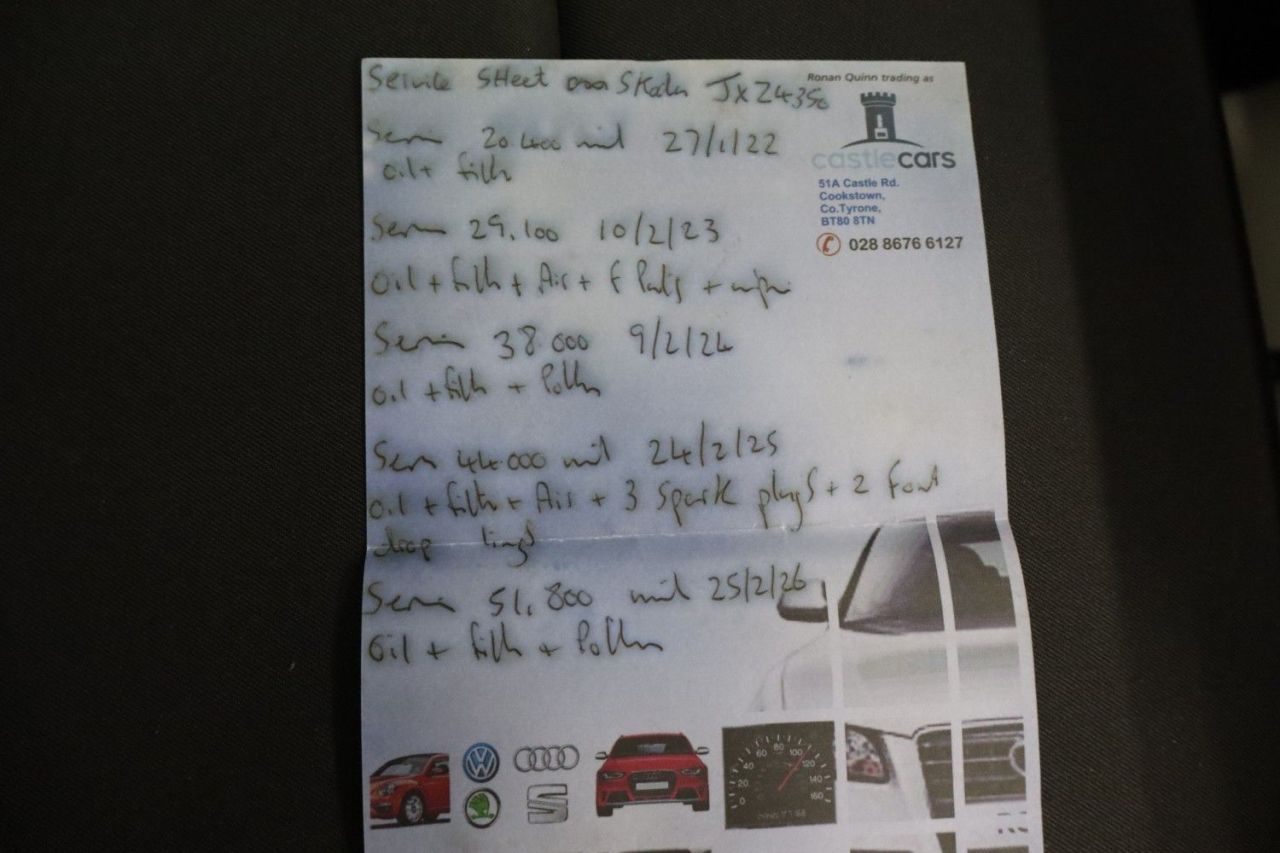 Service SHeet on Skoda JXZ4356
Ronan Quinn trading as
castlecars
51A Castle Rd.
Cookstown,
Co.Tyrone,
BT80 8TN
028 8676 6127
Service 20.400 mil 27/1/22
Oil + filter
Service 29.100 10/2/23
Oil + filter + Air + F Pads + wiper
Service 38.000 9/2/24
Oil + filter + Pollen
Service 44.000 mil 24/2/25
Oil + filter + Air + 3 Spark plugs + 2 front
drop links
Service 51,800 mil 25/2/26
Oil + filter + Pollen
0 20 40 60 80 100 120 140 160